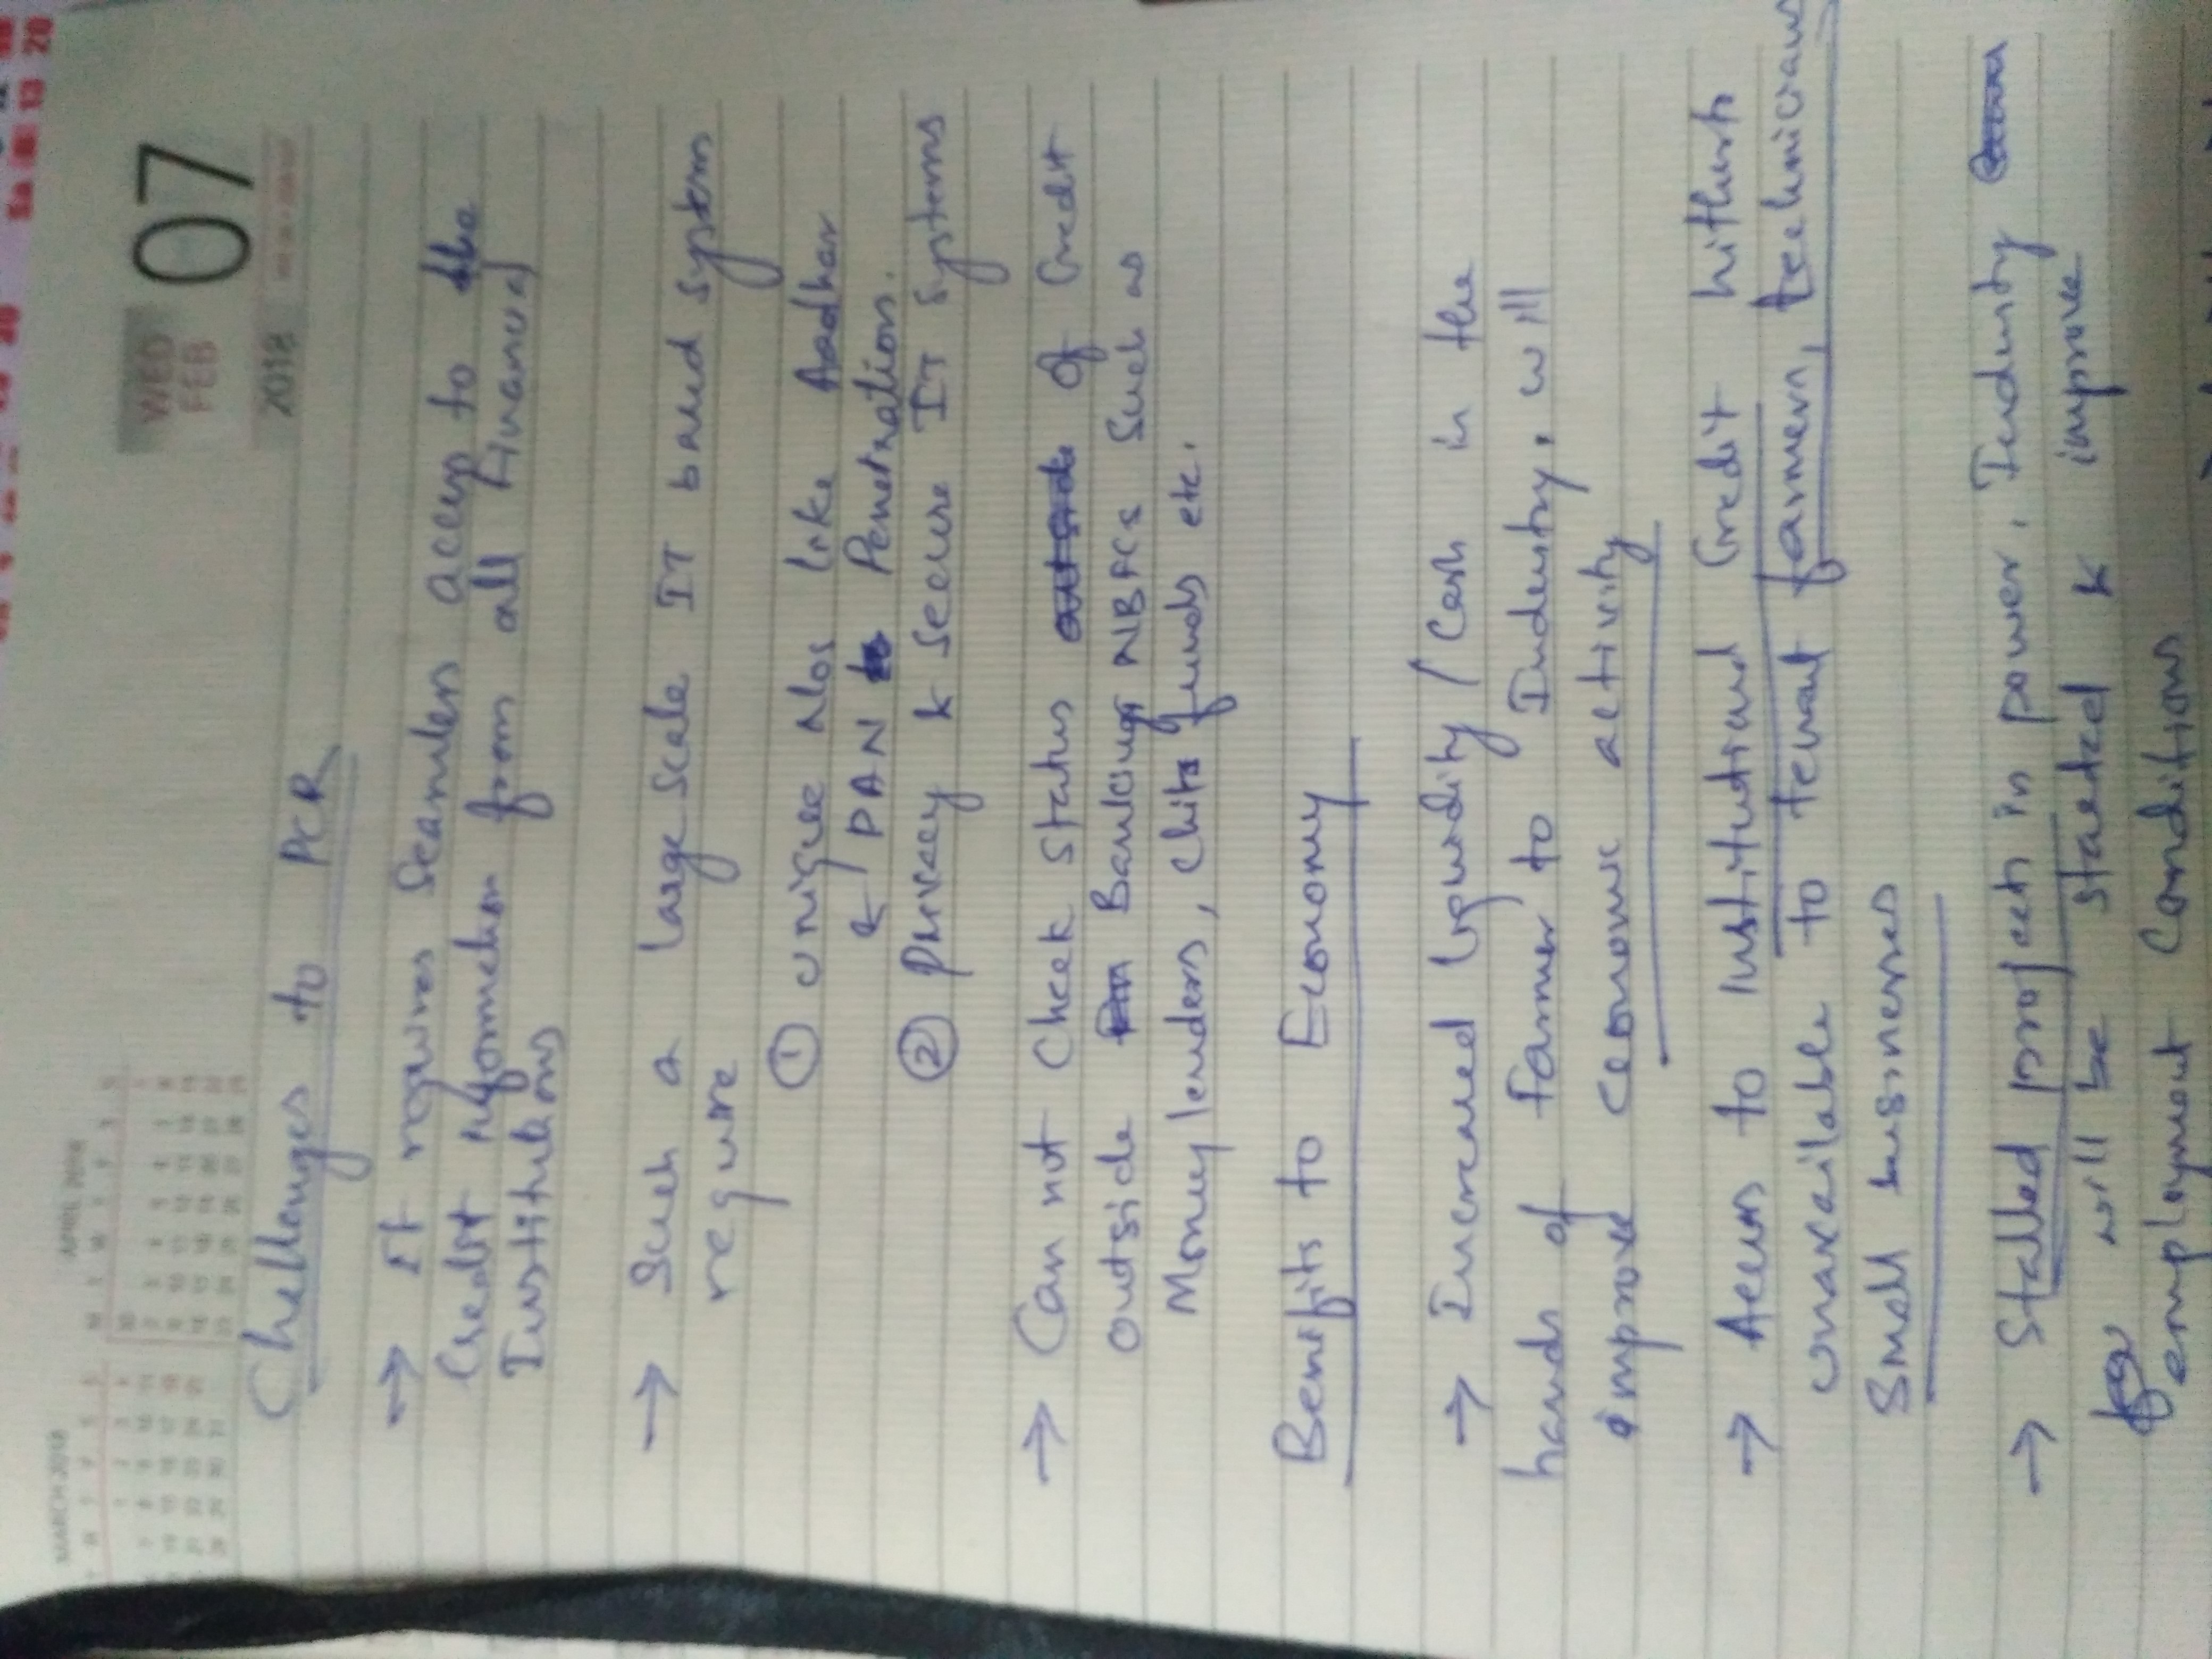 WED
FEB
2018
07
APRIL 2018
MARCH 2018
Challenges to PCR
→ It requires Seamless access to the
Credit information from all Financial
Institutions
→ Such a large scale IT based system
require
① unique Nos like Aadhar
& PAN Penetration.
② privacy & Secure IT systems
→ Can not Check status of Credit
outside Banking NBFCs such as
Money lenders, chits funds etc.
Benifits to Economy
→ Increased liquidity / Cash in the
hands of farmer to Industry, will
improve economic activity
→ Access to Institutional Credit hitherto
unavailable to tenant farmers, technicians
Small businesses
→ Stalled projects in power, Industry
will be started & improve
employment Conditions